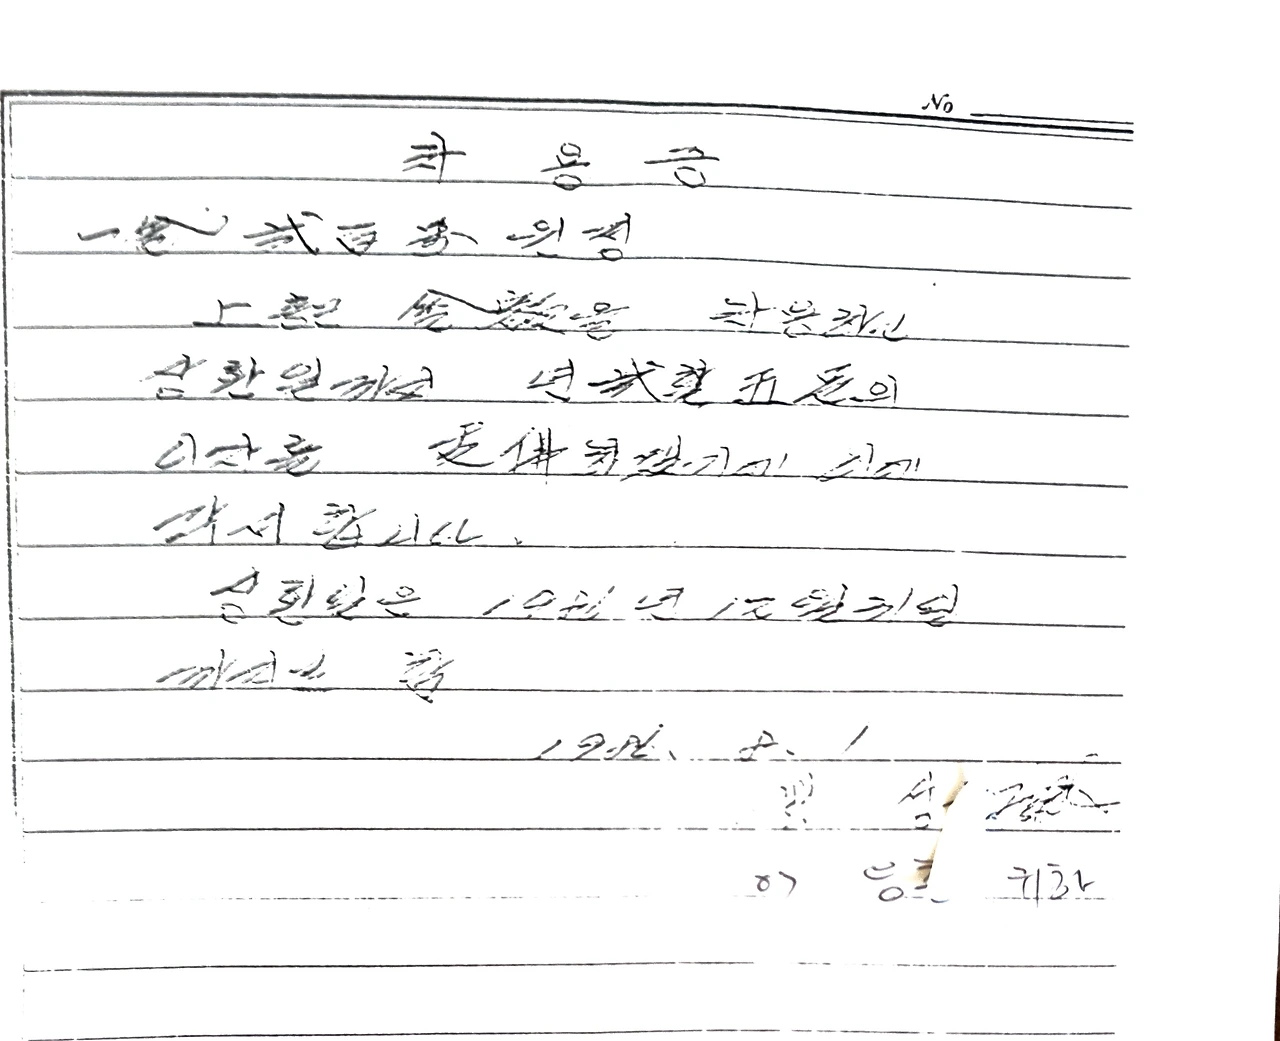 No
차 용 금
一金 貳百萬 원정
上記 金額을 차용하고
상환일까지 년 貳割 五分의
이자를 支佛하겠기에 이에
각서 합니다.
상환일은 년 12월 31일
까지로 함
8. 1
이 귀하